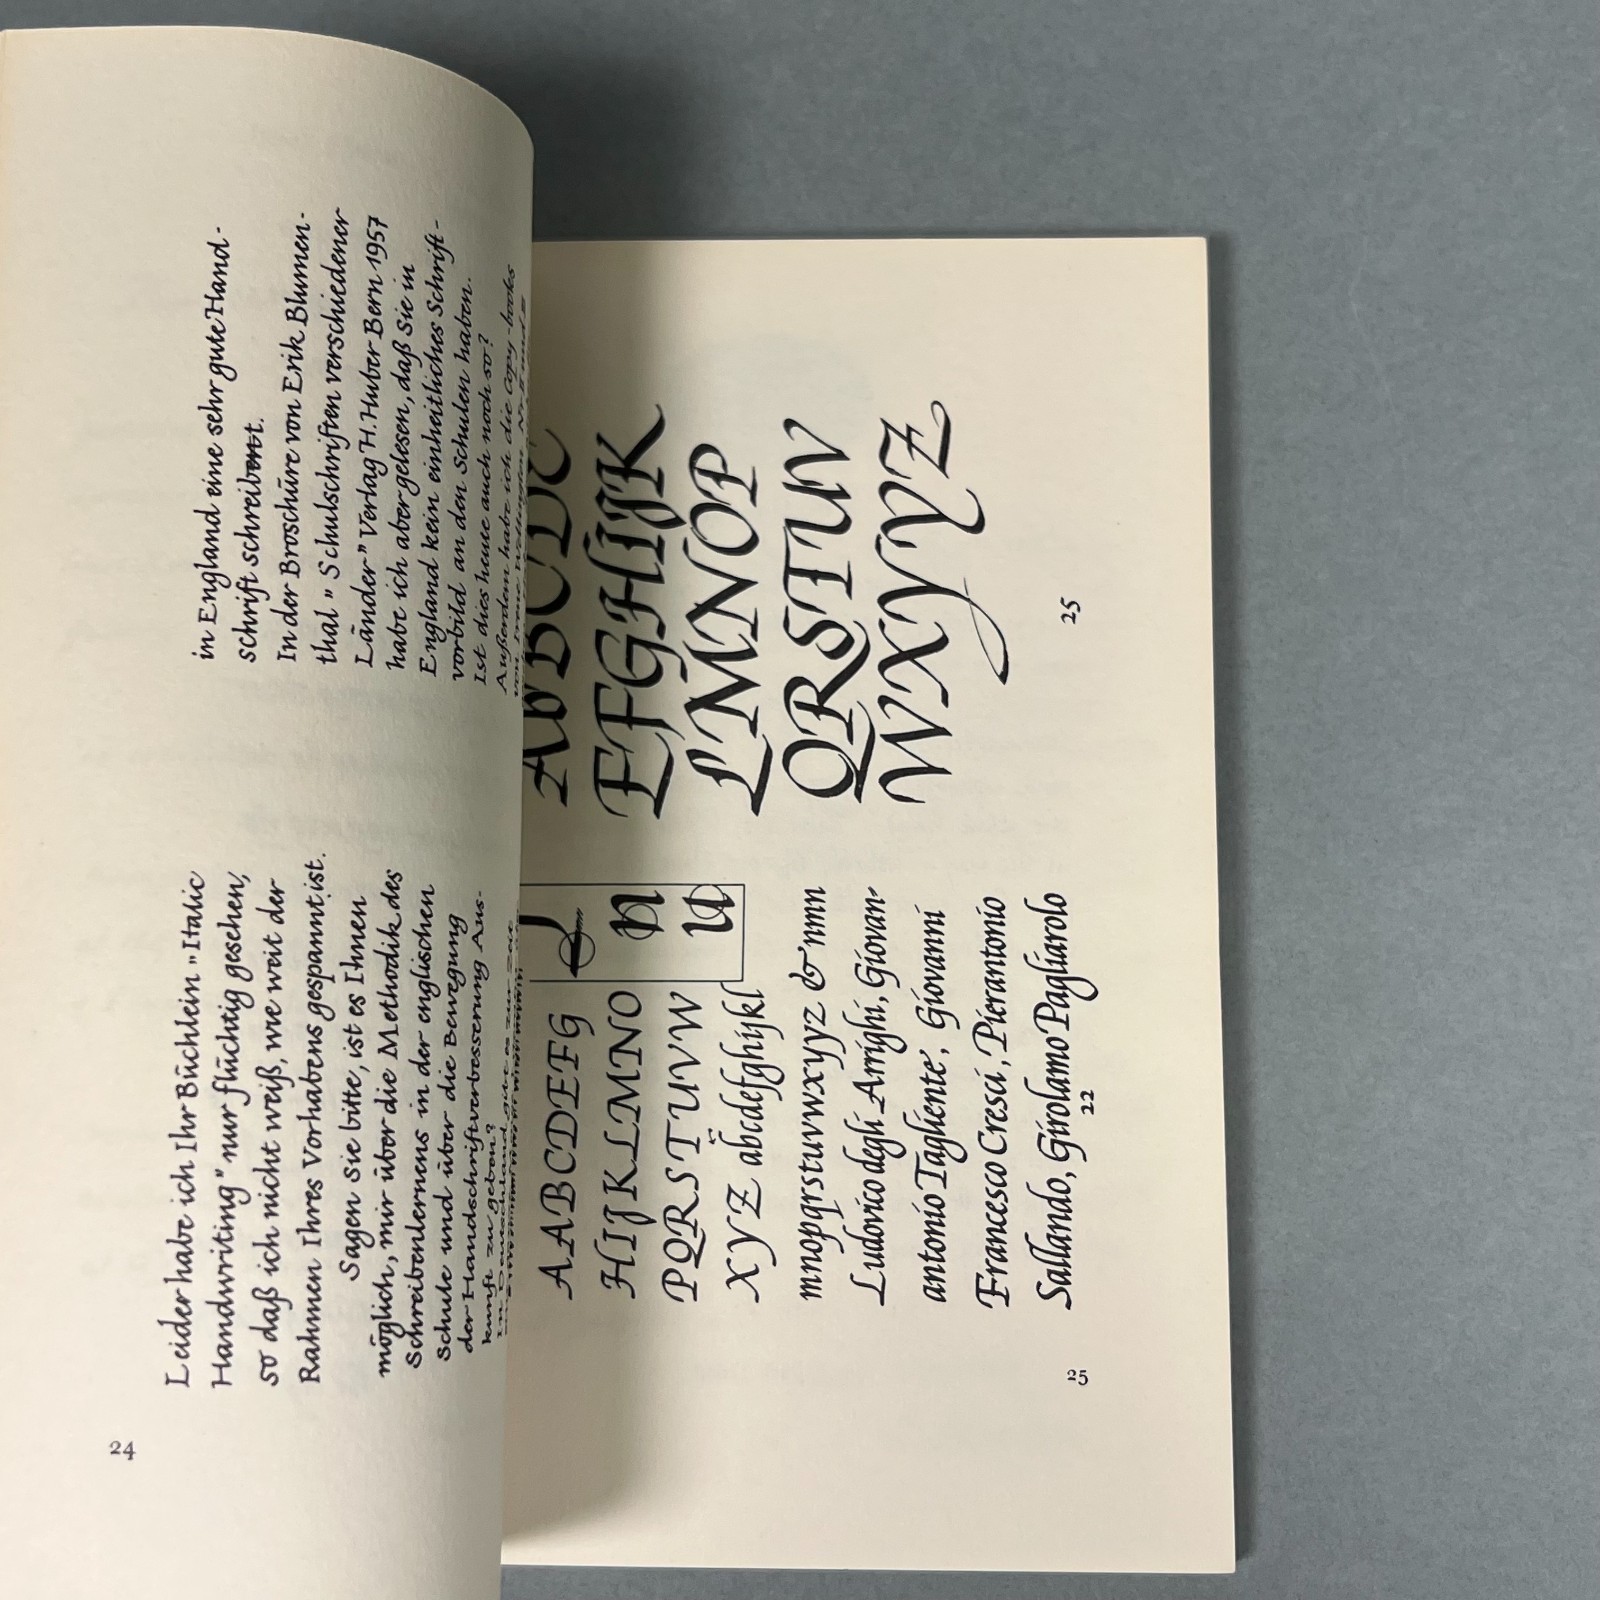 Leider habe ich Ihr Büchlein „Italic
Handwriting" nur flüchtig gesehen,
so daß ich nicht weiß, wie weit der
Rahmen Ihres Vorhabens gespannt ist.
Sagen Sie bitte, ist es Ihnen
möglich, mir über die Methodik des
Schreibenlernens in der englischen
Schule und über die Bewegung
der Handschriftverbesserung Aus-
kunft zu geben?
In Deutschland gibt es zur Zeit
24
in England eine sehr gute Hand-
schrift schreibt.
In der Broschüre von Erik Blumen-
thal „Schulschriften verschiedener
Länder" Verlag H. Huber Bern 1957
habe ich aber gelesen, daß Sie in
England kein einheitliches Schrift-
vorbild an den Schulen haben.
Ist dies heute auch noch so?
Außerdem habe ich die Copy-books
von Irene Wellington Nr II und
AABCDEFG
HIJKLMNO
PQRSTUVW
XYZ abcdefghijkl
mnopqrstuvwxyyz & nmn
Ludovico degli Arrighi, Giovan-
antonio Tagliente, Giovanni
Francesco Cresci, Pierantonio
Sallando, Girolamo Pagliarolo
22
n
u
EFGHIJK
LMNOP
QRSTUV
WXYYZ
25
25